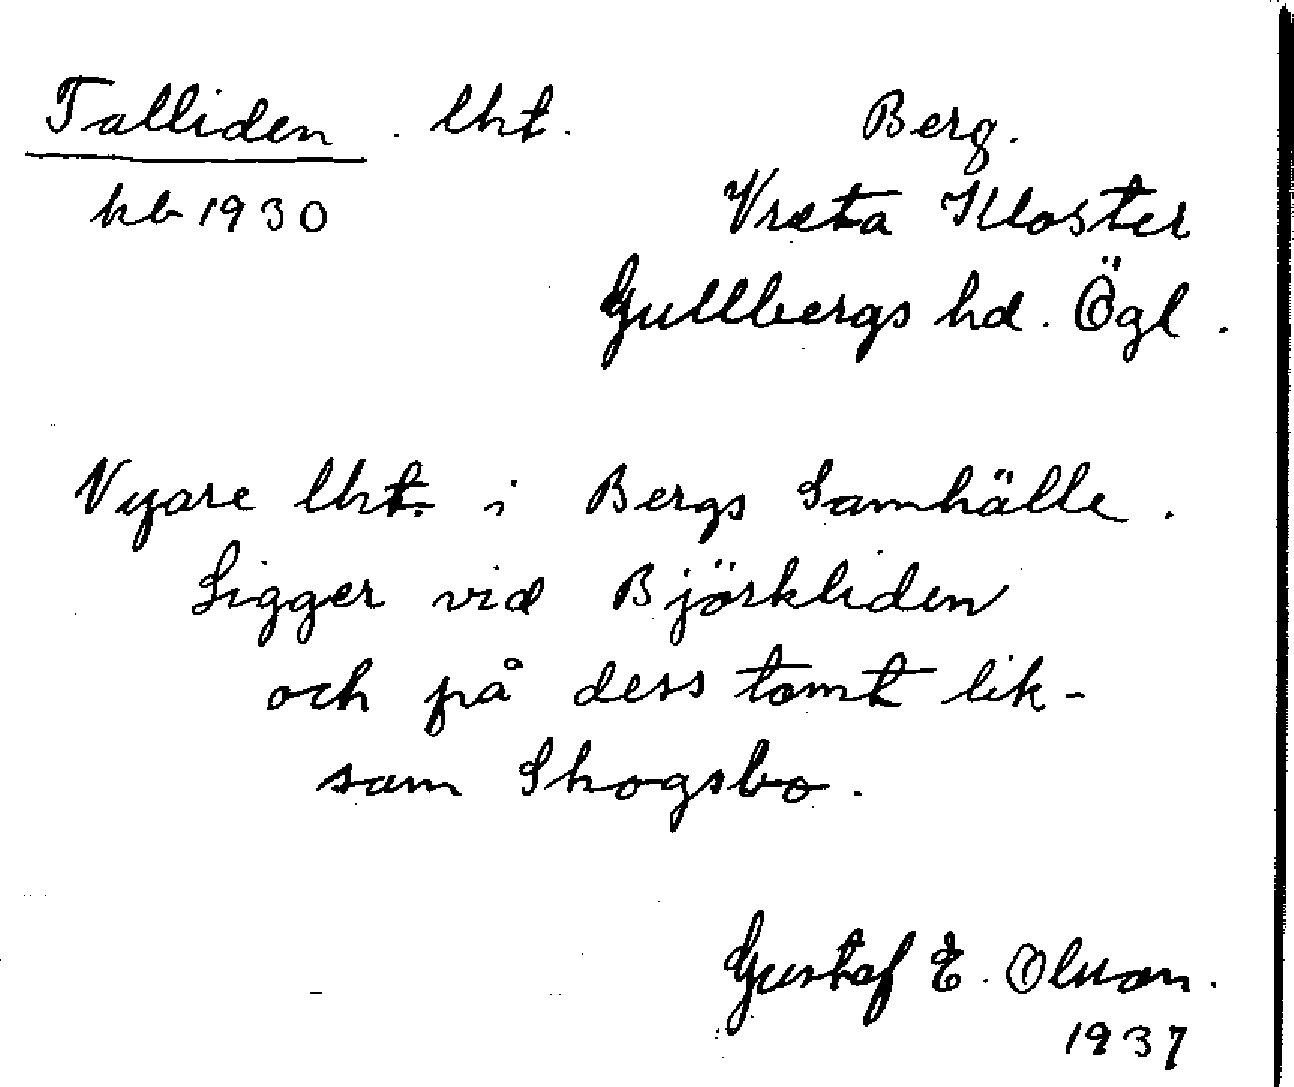 Talliden . lht. Berg.
kb 1930 Vreta Kloster
Gullbergs hd. Ögl.
Nyare lht. i Bergs Samhälle.
Ligger vid Björkliden
och på dess tomt lik-
som Skogsbo.
Gustaf E. Olson.
1937